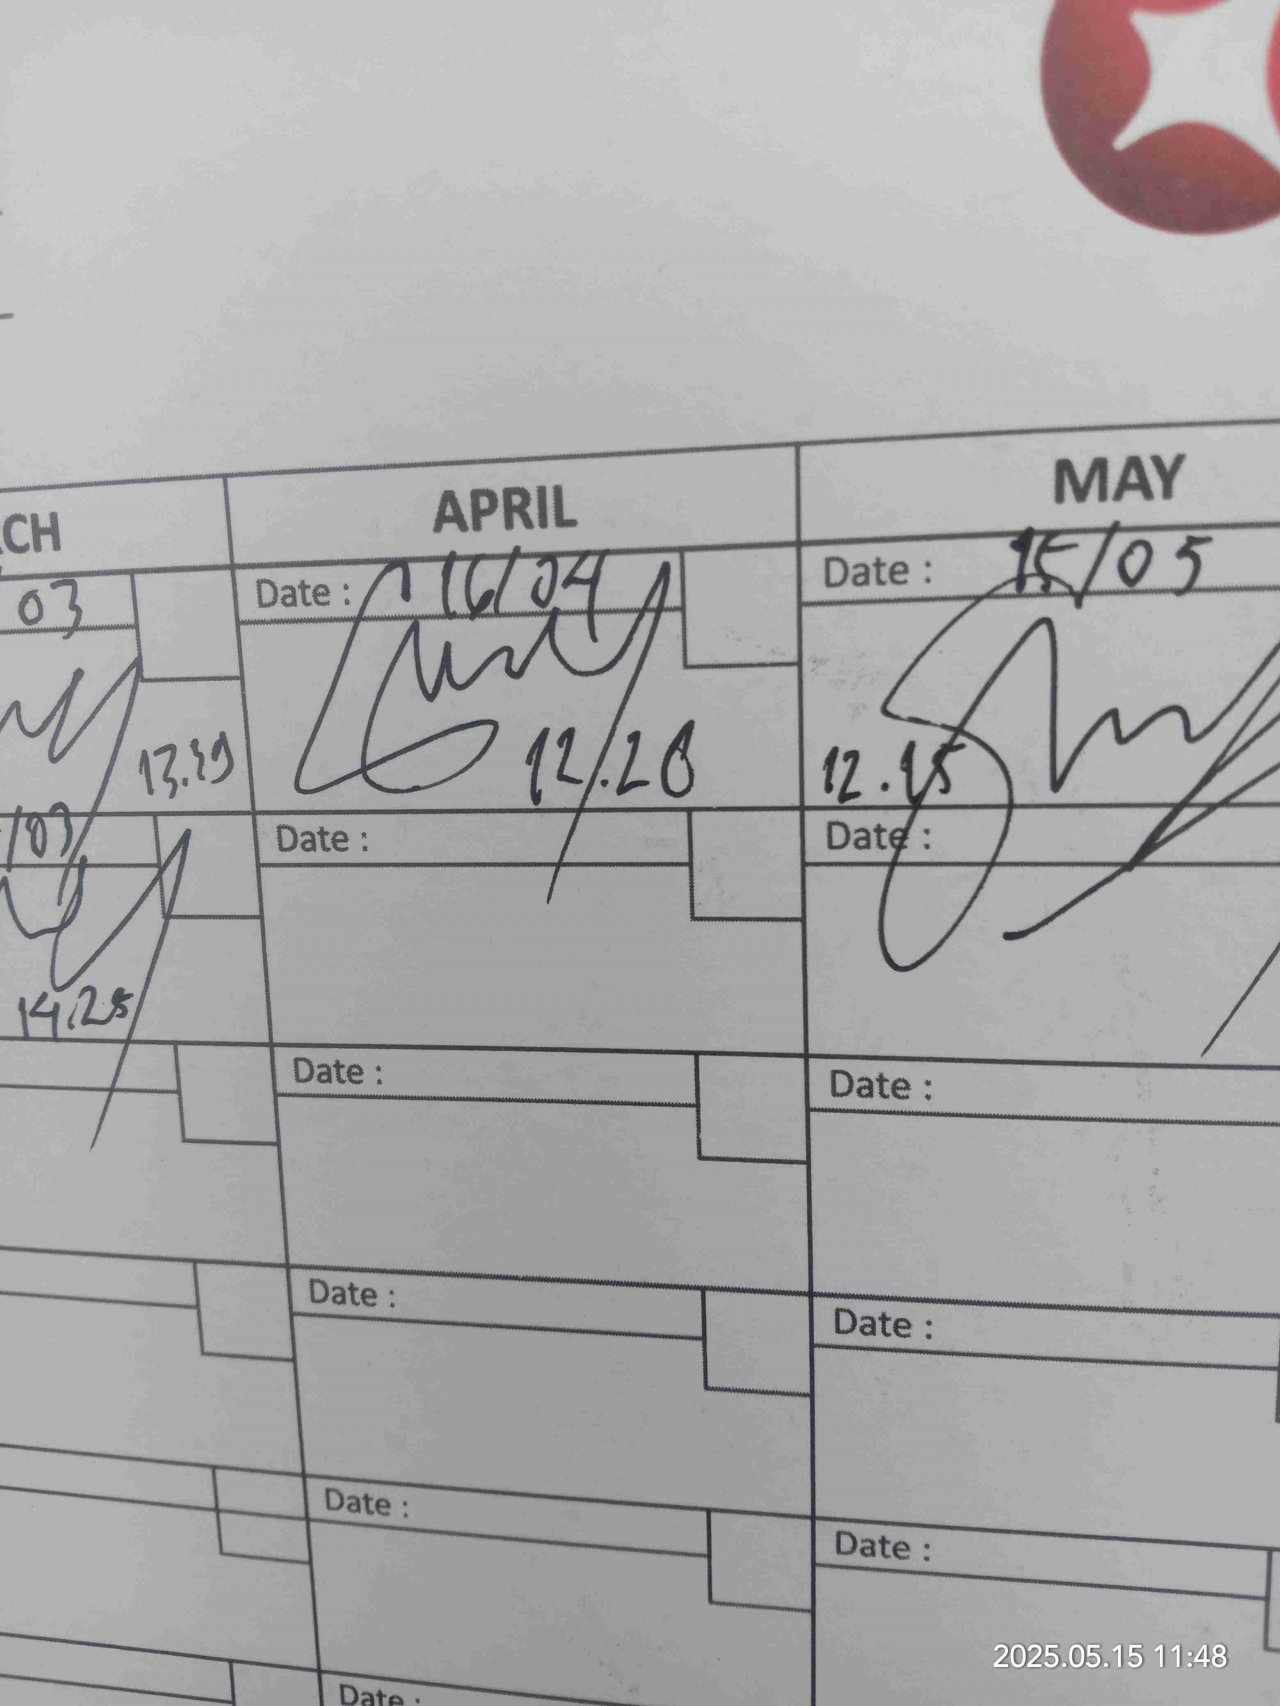 CH APRIL MAY
03 Date : 16/04 Date : 15/05
13.39 12.20 12.15
/03 Date : Date :
14.25
Date : Date :
Date : Date :
Date : Date :
Date :
2025.05.15 11:48